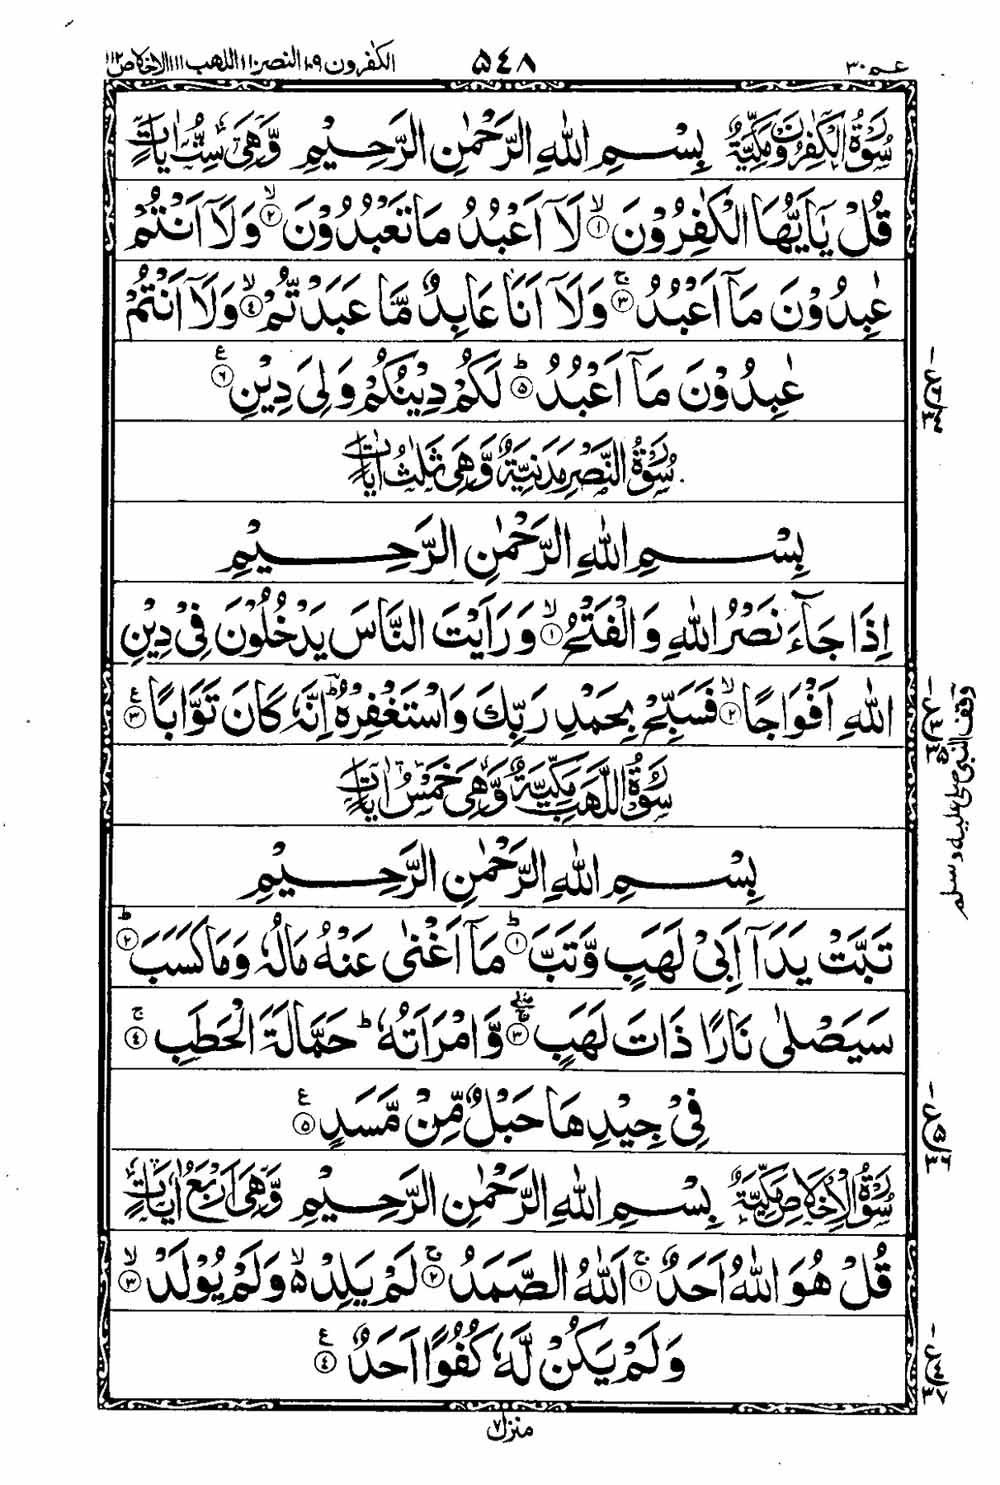 عم ٣٠
۵۴۸
الكفرون ١٠٩ النصر ١١٠ اللهب ١١١ الاخلاص ١١٢
سُوْرَةُ الْكٰفِرُوْنَ مَكِّيَّةٌ بِسْمِ اللهِ الرَّحْمٰنِ الرَّحِيْمِ وَّهِيَ سِتُّ اٰيَاتٍ
قُلْ يٰۤاَيُّهَا الْكٰفِرُوْنَ ۙ﴿١﴾ لَاۤ اَعْبُدُ مَا تَعْبُدُوْنَ ۙ﴿٢﴾ وَلَاۤ اَنْتُمْ
عٰبِدُوْنَ مَاۤ اَعْبُدُ ۚ﴿٣﴾ وَلَاۤ اَنَا عَابِدٌ مَّا عَبَدْتُّمْ ۙ﴿٤﴾ وَلَاۤ اَنْتُمْ
عٰبِدُوْنَ مَاۤ اَعْبُدُ ؕ﴿۵﴾ لَكُمْ دِيْنُكُمْ وَلِيَ دِيْنِ ﴿٦﴾ ع
سُوْرَةُ النَّصْرِ مَدَنِيَّةٌ وَّهِيَ ثَلٰثُ اٰيَاتٍ
بِسْمِ اللهِ الرَّحْمٰنِ الرَّحِيْمِ
اِذَا جَآءَ نَصْرُ اللهِ وَالْفَتْحُ ۙ﴿١﴾ وَرَاَيْتَ النَّاسَ يَدْخُلُوْنَ فِيْ دِيْنِ
اللهِ اَفْوَاجًا ۙ﴿٢﴾ فَسَبِّحْ بِحَمْدِ رَبِّكَ وَاسْتَغْفِرْهُ ؕ اِنَّهٗ كَانَ تَوَّابًا ﴿٣﴾ ع
سُوْرَةُ اللَّهَبِ مَكِّيَّةٌ وَّهِيَ خَمْسُ اٰيَاتٍ
بِسْمِ اللهِ الرَّحْمٰنِ الرَّحِيْمِ
تَبَّتْ يَدَاۤ اَبِيْ لَهَبٍ وَّتَبَّ ؕ﴿١﴾ مَاۤ اَغْنٰى عَنْهُ مَالُهٗ وَمَا كَسَبَ ؕ﴿٢﴾
سَيَصْلٰى نَارًا ذَاتَ لَهَبٍ ۚ﴿٣﴾ وَّامْرَاَتُهٗ ؕ حَمَّالَةَ الْحَطَبِ ۚ﴿٤﴾
فِيْ جِيْدِهَا حَبْلٌ مِّنْ مَّسَدٍ ﴿۵﴾ ع
سُوْرَةُ الْاِخْلَاصِ مَكِّيَّةٌ بِسْمِ اللهِ الرَّحْمٰنِ الرَّحِيْمِ وَّهِيَ اَرْبَعُ اٰيَاتٍ
قُلْ هُوَ اللهُ اَحَدٌ ۚ﴿١﴾ اَللهُ الصَّمَدُ ۚ﴿٢﴾ لَمْ يَلِدْ ۙ۬ وَلَمْ يُوْلَدْ ۙ﴿٣﴾
وَلَمْ يَكُنْ لَّهٗ كُفُوًا اَحَدٌ ﴿٤﴾ ع
وقف النبي صلى عليه وسلم
منزل ٧